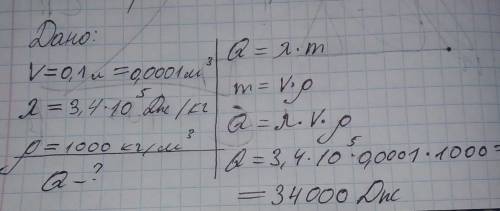 Дано:
V = 0,1 л = 0,0001 м³
λ = 3,4·10⁵ Дж/кг
ρ = 1000 кг/м³
Q – ?
Q = λ·m
m = V·ρ
Q = λ·V·ρ
Q = 3,4·10⁵·0,0001·1000 =
= 34000 Дж